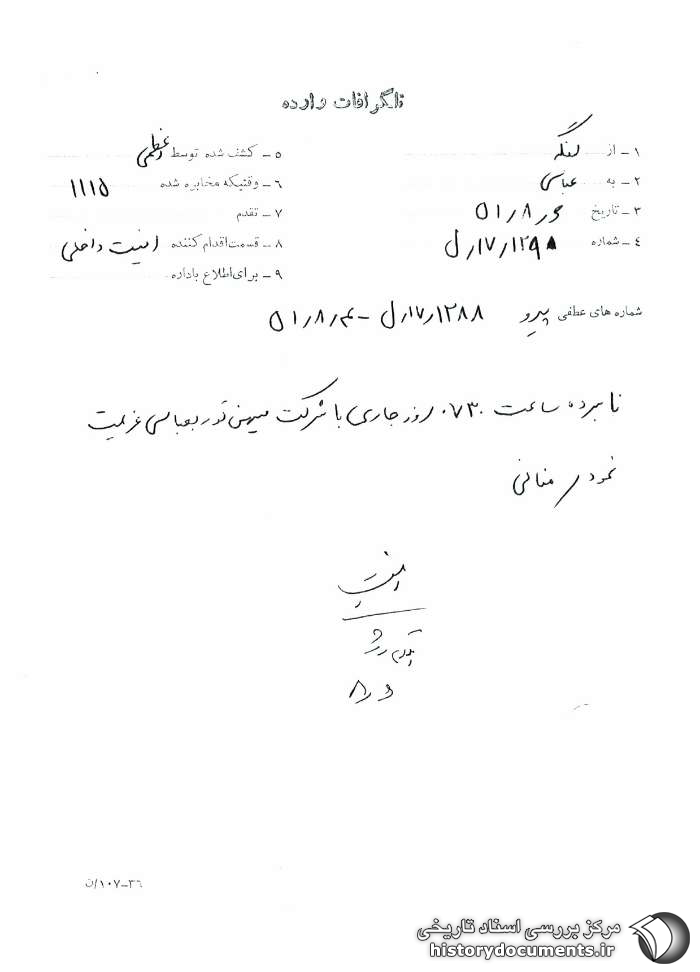 تلگرافات وارده
۱ - از لنگه
۲ - به عباسی
۳ - تاریخ ۵۱/۸/۶
٤ - شماره ۱۲۹۸/۱۷/ل
۵ - کشف شده توسط
۶ - وقتیکه مخابره شده ۱۱۱۵
۷ - تقدم
۸ - قسمت اقدام کننده امنیت داخلی
۹ - برای اطلاع باداره
شماره های عطفی پیرو ۱۲۸۸/۱۷/ل - ۵۱/۸/۴
نامبرده ساعت ۰۷۳۰ روز جاری با شرکت میهن تور بعباسی عزیمت
نمود
امنیت
۸/۶
۳۶-۱۰۷/ن
مرکز بررسی اسناد تاریخی
historydocuments.ir